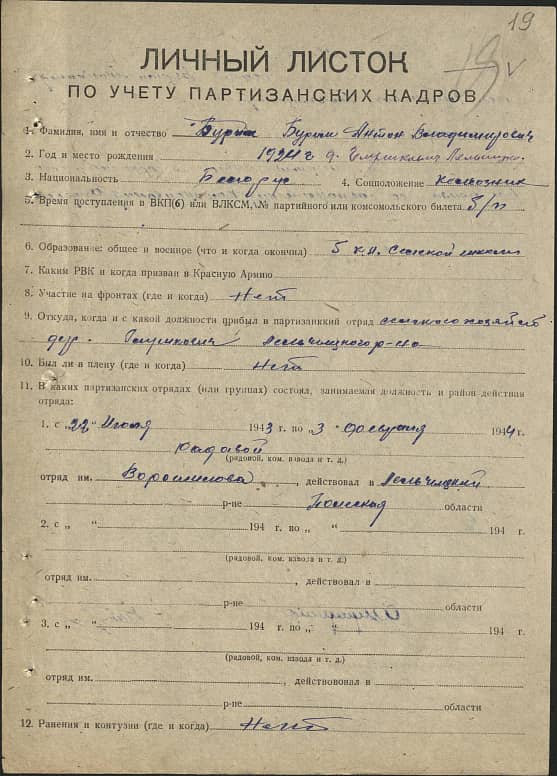 19
ЛИЧНЫЙ ЛИСТОК
ПО УЧЕТУ ПАРТИЗАНСКИХ КАДРОВ
1. Фамилия, имя и отчество Бурим Антон Владимирович
2. Год и место рождения 1924 г д.
3. Национальность Белорус 4. Соцположение колхозник
5. Время поступления в ВКП(б) или ВЛКСМ, № партийного или комсомольского билета б/п
6. Образование: общее и военное (что и когда окончил) 5 кл. сельской школы
7. Каким РВК и когда призван в Красную Армию
8. Участие на фронтах (где и когда) Нет
9. Откуда, когда и с какой должности прибыл в партизанский отряд
дер. Лельчицкого р-на
10. Был ли в плену (где и когда) Нет
11. В каких партизанских отрядах (или группах) состоял, занимаемая должность и район действия
отряда:
1. с „22" Июля 1943 г. по „3" февраля 1944 г.
рядовой
(рядовой, ком. взвода и т. д.)
отряд им. Ворошилова, действовал в Лельчицкий
р-не Полесская области
2. с „ " 194 г. по „ " 194 г.
(рядовой, ком. взвода и т. д.)
отряд им. действовал в
р-не области
3. с „ " 194 г. по „ " 194 г.
(рядовой, ком. взвода и т. д.)
отряд им. действововал в
р-не области
12. Ранения и контузии (где и когда) Нет